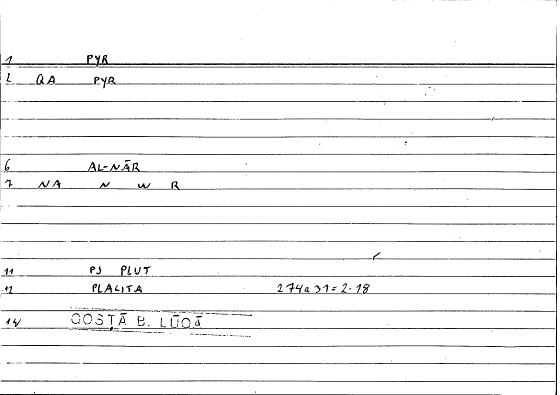 1 PYR
2 QA PYR
6 AL-NĀR
7 NA N W R
11 PS PLUT
12 PLACITA 274a31=2.18
14 QOSṬĀ B. LŪQĀ